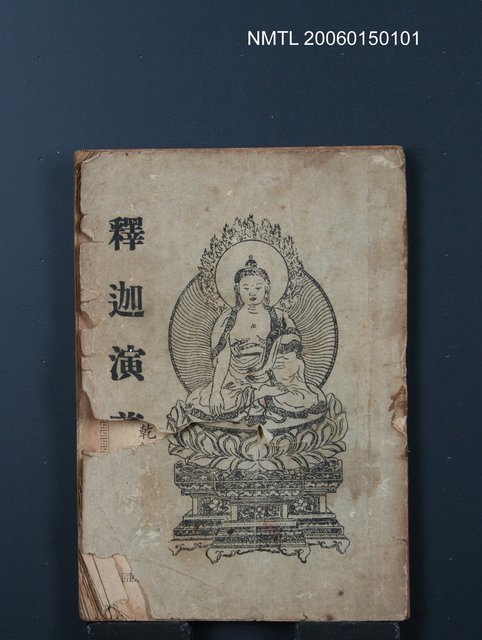 NMTL 20060150101
釋迦演
乾